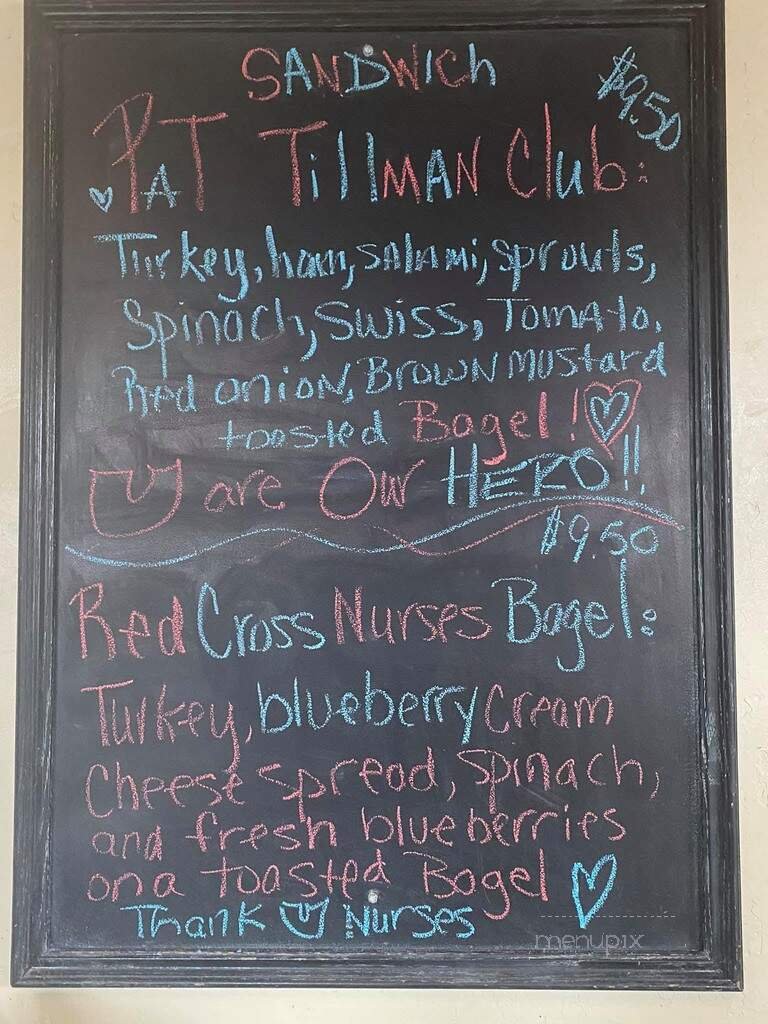 SANDWICh
$9.50
PAT TillMAN Club:
Turkey, ham, salami, sprouts,
Spinach, Swiss, Tomato,
Red onion, Brown mustard
toosted Bagel!
U are Our HERO!!
$9.50
Red Cross Nurses Bagel:
Turkey, blueberry Cream
Cheese spread, spinach,
and fresh blueberries
on a toasted Bagel
Thank U Nurses
menupix